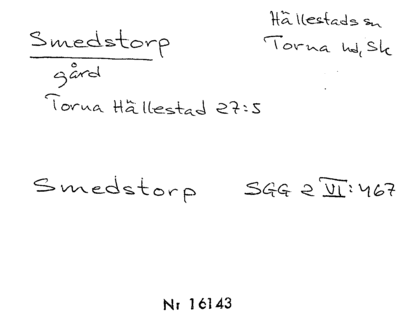 Smedstorp
gård
Torna Hällestad 27:5
Hällestads sn
Torna hd, Sk
Smedstorp SGG 2 VI:467
Nr 16143